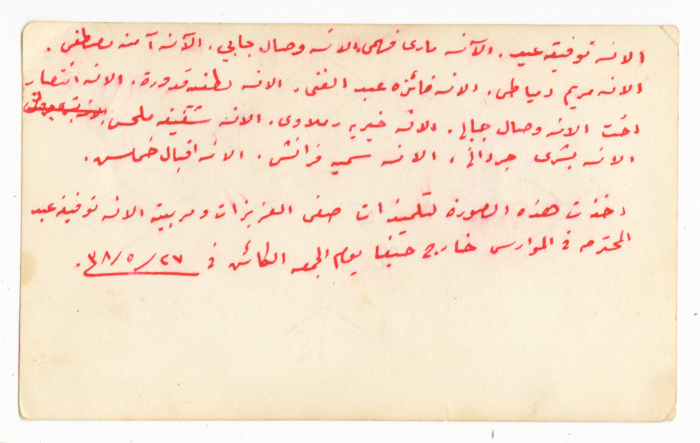 الانسه توفيقه عبيد. الآنسه ماري فهمي. الانسه وصال جابي. الآنسه آمنه مصطفى.
الانسه مريم دمياطي. الانسه فائزه عبد الغني. الانسه لطفيه قدورة. الانسه انتصار
اخت الانسه وصال جبالي. الانسه خيريه رملاوي. الانسه شفيقه ملحس.
الانسه بشرى جرداني. الانسه سميه فرانش. الانسه اقبال خماس.
اخذت هذه الصورة لتلميذات صفي العزيزات ومربيته الانسه توفيقه عبيد
المحترمه في المدارس خارج حيفا يوم الجمعه الكائن في ٢٧/٥/٣٨.